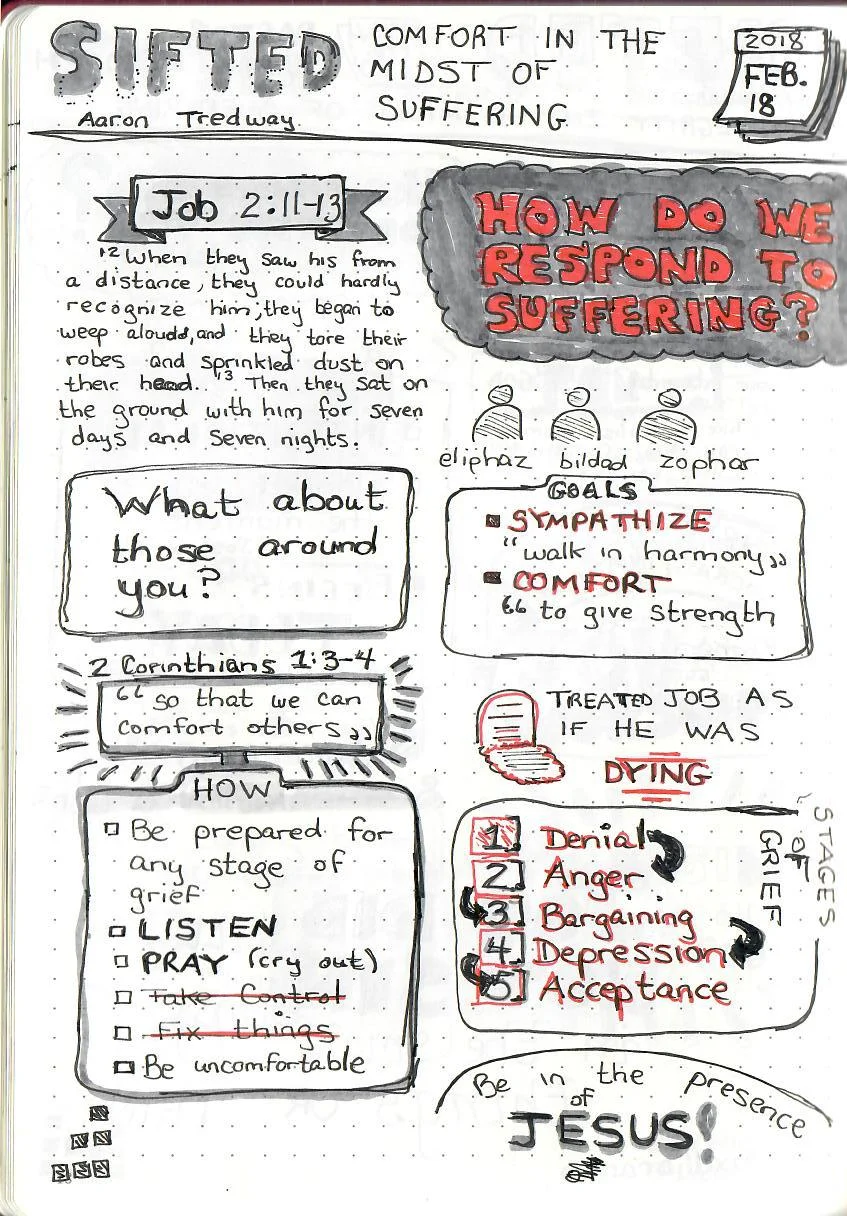 SIFTED
Aaron Tredway
COMFORT IN THE
MIDST OF
SUFFERING
2018
FEB.
18
Job 2:11-13
12 When they saw his from
a distance, they could hardly
recognize him; they began to
weep aloudd, and they tore their
robes and sprinkled dust on
their head. 13 Then they sat on
the ground with him for seven
days and seven nights.
What about
those around
you?
2 Corinthians 1:3-4
“so that we can
comfort others”
HOW
Be prepared for
any stage of
grief
LISTEN
PRAY (cry out)
Take Control
Fix things
Be uncomfortable
HOW DO WE
RESPOND TO
SUFFERING?
eliphaz bildad zophar
GOALS
SYMPATHIZE
“walk in harmony”
COMFORT
“to give strength
TREATED JOB AS
IF HE WAS
DYING
STAGES
OF
GRIEF
1. Denial
2. Anger
3. Bargaining
4. Depression
5. Acceptance
Be in the presence
of
JESUS!